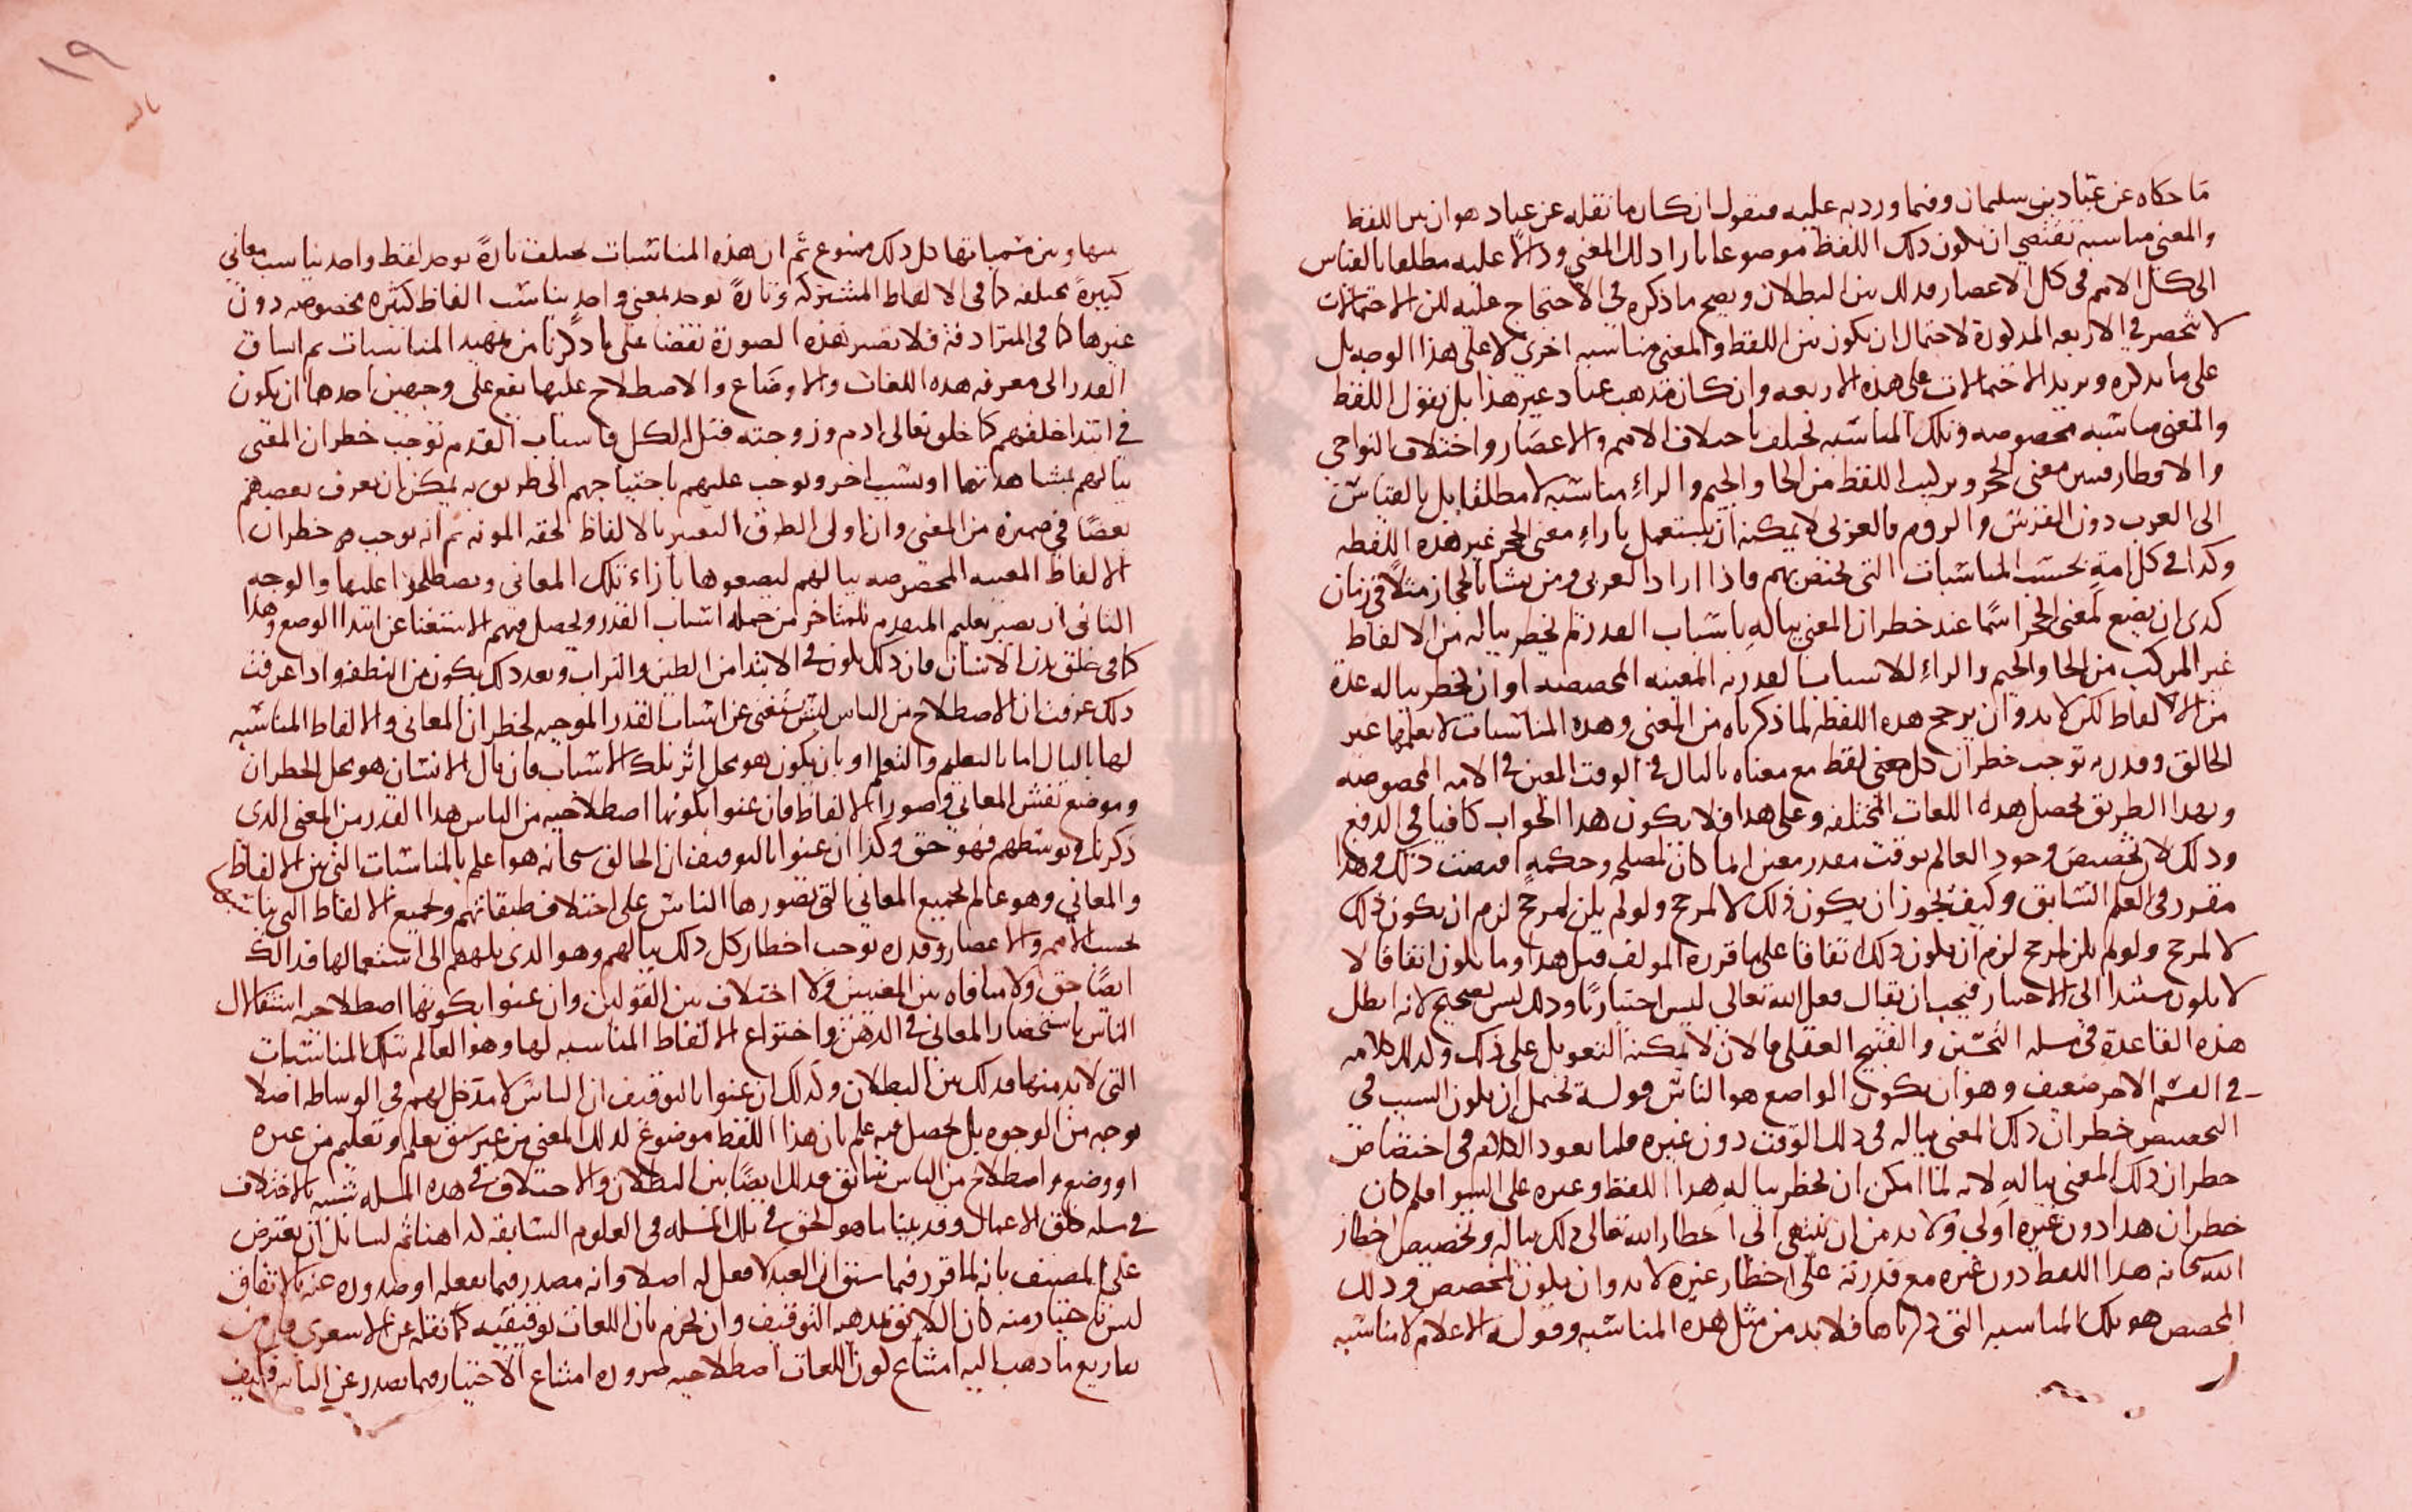 ما حكاه عن عباد بن سليمان وفيما ورد به عليه فنقول ان كان ما نقله عن عباد هو ان بين اللفظ
والمعنى مناسبة تقتضي ان يكون ذلك اللفظ موضوعا بازاء ذلك المعنى ودالا عليه مطلقا بالقياس
الى كل الامم في كل الاعصار فذلك بين البطلان ويصح ما ذكره في الاحتجاج عليه لكن الاحتمالات
لا تنحصر في الاربعة المذكورة لاحتمال ان يكون بين اللفظ والمعنى مناسبة اخرى لا على هذا الوجه بل
على ما نذكره ونزيد الاحتمالات على هذه الاربعة وان كان مذهب عباد غير هذا بل نقول اللفظ
والمعنى مناسبة مخصوصة وتلك المناسبة تختلف باختلاف الامم والاعصار واختلاف النواحي
والاقطار فبين معنى الحجر وتركيب اللفظ من الحا والجيم والراء مناسبة لا مطلقا بل بالقياس
الى العرب دون الفرس والروم فالعربي لا يمكنه ان يستعمل بازاء معنى الحجر غير هذه اللفظة
وكذا في كل امة بحسب المناسبات التي تختص بهم فاذا اراد العربي ومن نشا بالحجاز مثلا في زمان
كذى ان يضع لمعنى الحجر اسما عند خطران المعنى بباله باسباب القدر لم يخطر بباله من الالفاظ
غير المركب من الحا والجيم والراء للاسباب القدرية المعينة المخصصة او ان يخطر بباله عدة
من الالفاظ لكن لا بد وان يرجح هذه اللفظة لما ذكرناه من المعنى وهذه المناسبات لا يعلمها غير
الخالق وقدرته توجب خطران كل معنى لفظ مع معناه بالبال في الوقت المعين في الامة المخصوصة
وبهذا الطريق يحصل هذه اللغات المختلفة وعلى هذا فلا يكون هذا الجواب كافيا في الدفع
وذلك لان تخصيص وجود العالم بوقت مقدر معين لما كان لمصلحة وحكمة اقتضت ذلك وهذا
مقرر في العلم السابق وكيف يجوز ان يكون ذلك لا لمرجح ولو لم يكن لمرجح لزم ان يكون ذلك
لا لمرجح ولو لم يكن لمرجح لزم ان يكون ذلك اتفاقا على ما قرره المولف قبل هذا وما يكون اتفاقا لا
لا يكون مستندا الى الاختيار فيجب ان يقال فعل الله تعالى ليس اختياريا وذلك ليس بصحيح لانه ابطل
هذه القاعدة في مسلة التحسين والتقبيح العقلي فالان لا يمكنه التعويل على ذلك وكذلك كلامه
في القسم الاخر ضعيف وهو ان يكون الواضع هو الناس قوله يحتمل ان يكون السبب في
التخصيص خطران ذلك المعنى بباله في ذلك الوقت دون غيره قلنا يعود الكلام في اختصاص
خطران ذلك المعنى بباله لانه لما امكن ان يخطر بباله هذا اللفظ وغيره على السوا فلم كان
خطران هذا دون غيره اولى ولا بد من ان ينتهي الى اخطار الله تعالى ذلك بباله وتخصيص اخطار
الله سبحانه هذا اللفظ دون غيره مع قدرته على اخطار غيره لا بد وان يكون لمخصص وذلك
المخصص هو تلك المناسبة التي ذكرناها فلا بد من مثل هذه المناسبة وقوله الاعلام لا مناسبة
١٩
بينها وبين مسمياتها كل ذلك ممنوع ثم ان هذه المناسبات تختلف تارة يوجد لفظ واحد يناسب معاني
كثيرة مختلفة كما في الالفاظ المشتركة وتارة يوجد لمعنى واحد يناسب الفاظ كثيرة مخصوصة دون
غيرها كما في المترادفة فلا تصير هذه الصورة نقضا على ما ذكرنا من تمهيد المناسبات ثم انساق
القدر الى معرفة هذه اللغات والاوضاع والاصطلاح عليها يقع على وجهين احدهما ان يكون
في ابتدا خلقهم كما خلق تعالى ادم وزوجته قبل الكل فاسباب القدم توجب خطران المعنى
ببالهم بمشاهدتهما او بسبب اخر ويوجب عليهم باحتياجهم الى طريق به يمكن ان يعرف بعضهم
بعضا في ضميره من المعنى وان اولى الطرق التعبير بالالفاظ لخفة المونة ثم انه يوجب خطران
الالفاظ المعينة المخصوصة ببالهم ليضعوها بازاء تلك المعاني ويصطلحوا عليها والوجه
الثاني ان يصير تعليم المتقدم للمتاخر من جملة اسباب القدر ويحصل فيهم الاستغنا عن ابتدا الوضع وهذا
كما في خلق بدن الانسان فان ذلك يكون في الابتدا من الطين والتراب وبعد ذلك يكون من النطفة واذا عرفت
ذلك عرفت ان الاصطلاح من الناس ليس يستغني عن اسباب القدر الموجبة لخطران المعاني والالفاظ المناسبة
لها بالبال اما بالتعليم والتعلم او بان يكون هو محل اثر تلك الاسباب فان بال الانسان هو محل الخطران
وموضع نقش المعاني وصور الالفاظ فان عنوا بكونها اصطلاحية من الناس هذا القدر من المعنى الذي
ذكرنا في توسطهم فهو حق وكذا ان عنوا بالتوقيف ان الخالق سبحانه هو اعلم بالمناسبات التي بين الالفاظ
والمعاني وهو عالم بجميع المعاني التي تصورها الناس على اختلاف طبقاتهم وبجميع الالفاظ التي يناسبها
بحسب الامم والاعصار وقدره يوجب اخطار كل ذلك ببالهم وهو الذي يلهمهم الى استعمالها فذلك
ايضا حق ولا منافاة بين المعنيين ولا اختلاف بين القولين وان عنوا بكونها اصطلاحية استقلال
الناس باستحضار المعاني في الذهن واختراع الالفاظ المناسبة لها وهو العالم بتلك المناسبات
التي لا بد منها فذلك بين البطلان وكذلك ان عنوا بالتوقيف ان الناس لا مدخل لهم في الوساطة اصلا
بوجه من الوجوه بل يحصل فيه علم بان هذا اللفظ موضوع لذلك المعنى من غير سبق تعلم وتعليم من غيره
او وضع واصطلاح من الناس سابق فذلك ايضا بين البطلان والاختلاف في هذه المسلة شبيه بالاختلاف
في مسلة خلق الاعمال وقد بينا ما هو الحق في تلك المسلة في العلوم السابقة لذا هنا ثم لسائل ان يعترض
على المصنف بانه لما قرر فيما سبق ان العبد لا فعل له اصلا وانه مصدر فيما يفعله او صدوره عنه بالاتفاق
ليس باختيار منه كان اللائق بمذهبه التوقيف وان يجزم بان اللغات توقيفية كما نقله عن الاشعري فان من
تفاريع ما ذهب اليه امتناع كون اللغات اصطلاحية ضرورة امتناع الاختيار فيما يصدر عن الناس فكيف